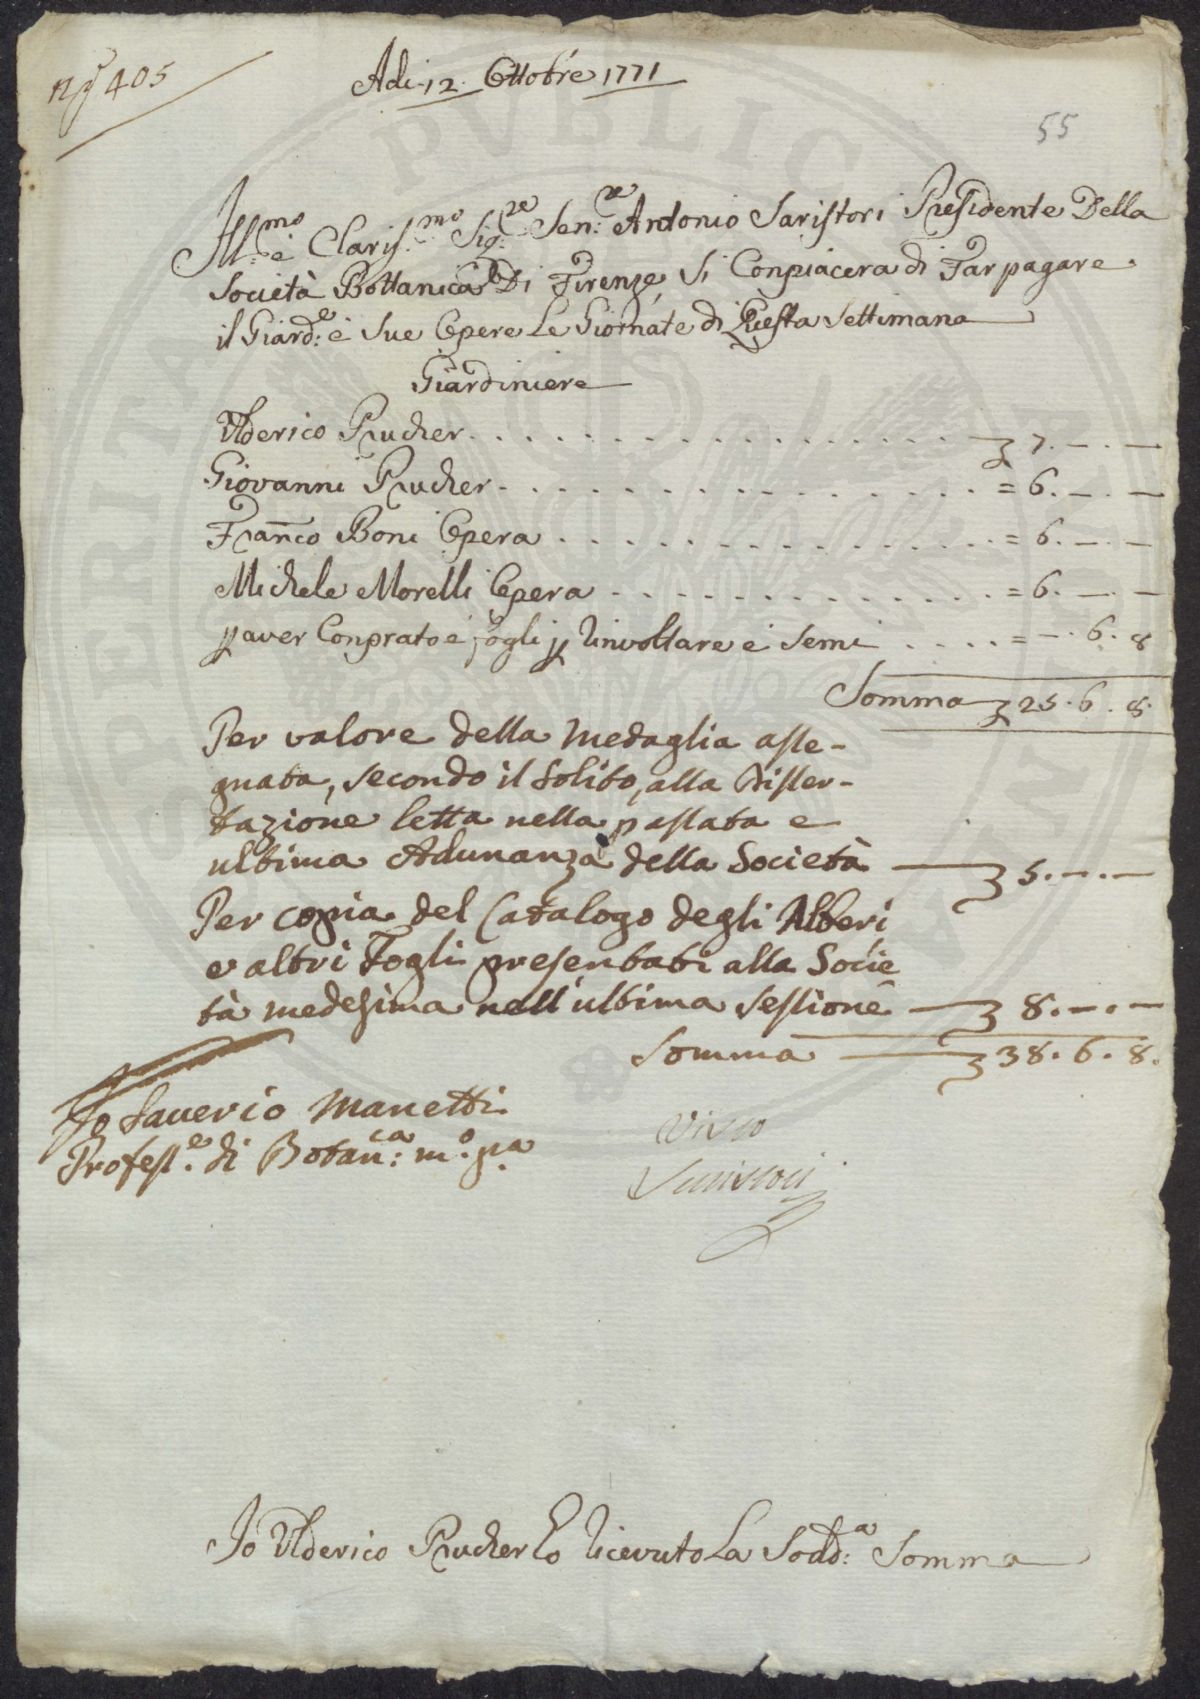 nº 405
Adi 12. Ottobre 1771
55
Ill:mo e Claris:mo Sig:re Sen:re Antonio Saristori Presidente Della
Società Bottanica Di Firenze, Si Conpiacera di Far pagare
il Giard:e è Sue Opere Le Giornate di Questa Settimana
Giardiniere
Ulderico Prucher . . . . . . . . . . 7. — . —
Giovanni Prucher . . . . . . . . . . = 6. — . —
Franco Boni Opera . . . . . . . . . . = 6. — . —
Michele Morelli Opera . . . . . . . . . . = 6. — . —
p aver Conprato é fogli p Rinvoltare é Semi . . . . = — . 6. 8
Somma 25. 6. 8.
Per valore della Medaglia asse-
gnata, secondo il solito, alla Disser-
tazione letta nella passata e
ultima Adunanza della Società — 5. — . —
Per copia del Catalogo degli Alberi
e altri Fogli presentati alla Socie
tà medesima nell'ultima sessione — 8. — . —
Somma — 38. 6. 8.
Io Saverio Manetti
Profess:e di Botan:ca m:o p:a
Visto
Io Ulderico Prucher ho Ricevuto La Sodd:a Somma
PVBLIC